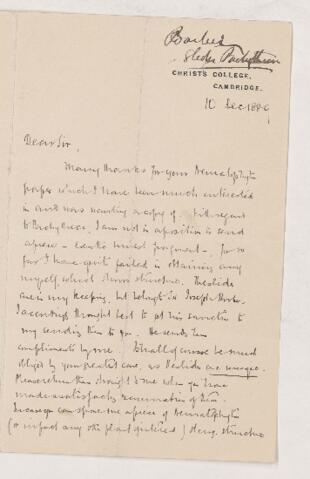 Barber
Slides Pachytheca
CHRIST'S COLLEGE,
CAMBRIDGE.
10 Dec 1889
Dear Sir,
Many thanks for your Nematophyton
paper which I have been much interested
in and was wanting a copy of. With regard
to Pachytheca I am not in a position to send
a piece
for so
far I have quite failed in obtaining any
myself which shows structure. The slides
are in my keeping but belong to Sir Joseph Hooker.
I accordingly thought best to ask his sanction to
my sending them to you. He sends his
compliments by me. I shall of course be much
obliged by your greatest care, as the slides are unique.
Please return them straight to me when you have
made a satisfactory examination of them.
In case you can spare me a piece of Nematophyton
(or in fact any other plant you have) showing structure